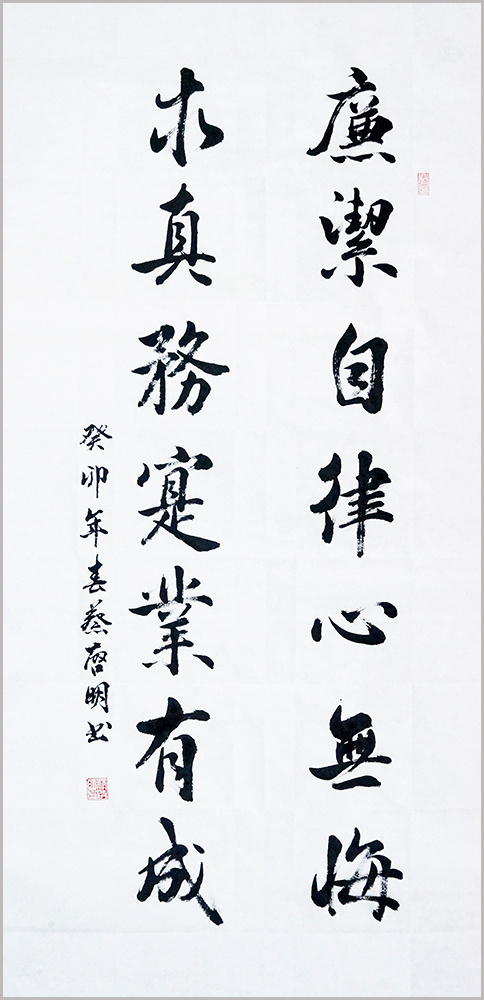 廉潔自律心無悔
求真務寔業有成
癸卯年春蔡啓明书